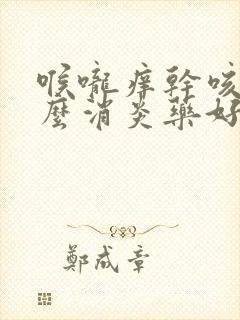 喉嚨癢幹咳
麼消炎藥好
鄭成章